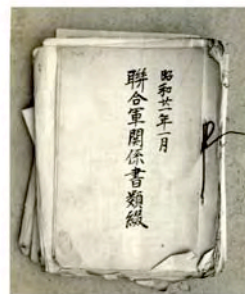 昭和廿一年一月
聯合軍関係書類綴